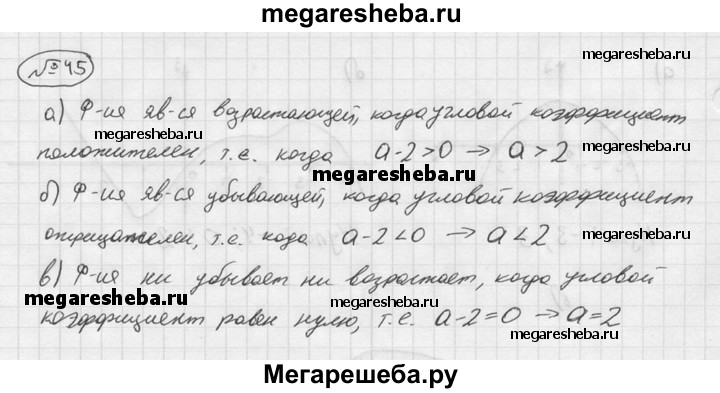 megaresheba.ru
№45
megaresheba.ru
а) Ф-ия яв-ся возрастающей, когда угловой коэффициент
megaresheba.ru
положителен, т.е. когда a-2>0 → a>2
megaresheba.ru
megaresheba.ru
б) Ф-ия яв-ся убывающей, когда угловой коэффициент
отрицателен, т.е. кода a-2<0 → a<2
в) Ф-ия ни убывает ни возрастает, когда угловой
megaresheba.ru
megaresheba.ru
megaresheba.ru
коэффициент равен нулю, т.е. a-2=0 → a=2
Мегарешеба.ру